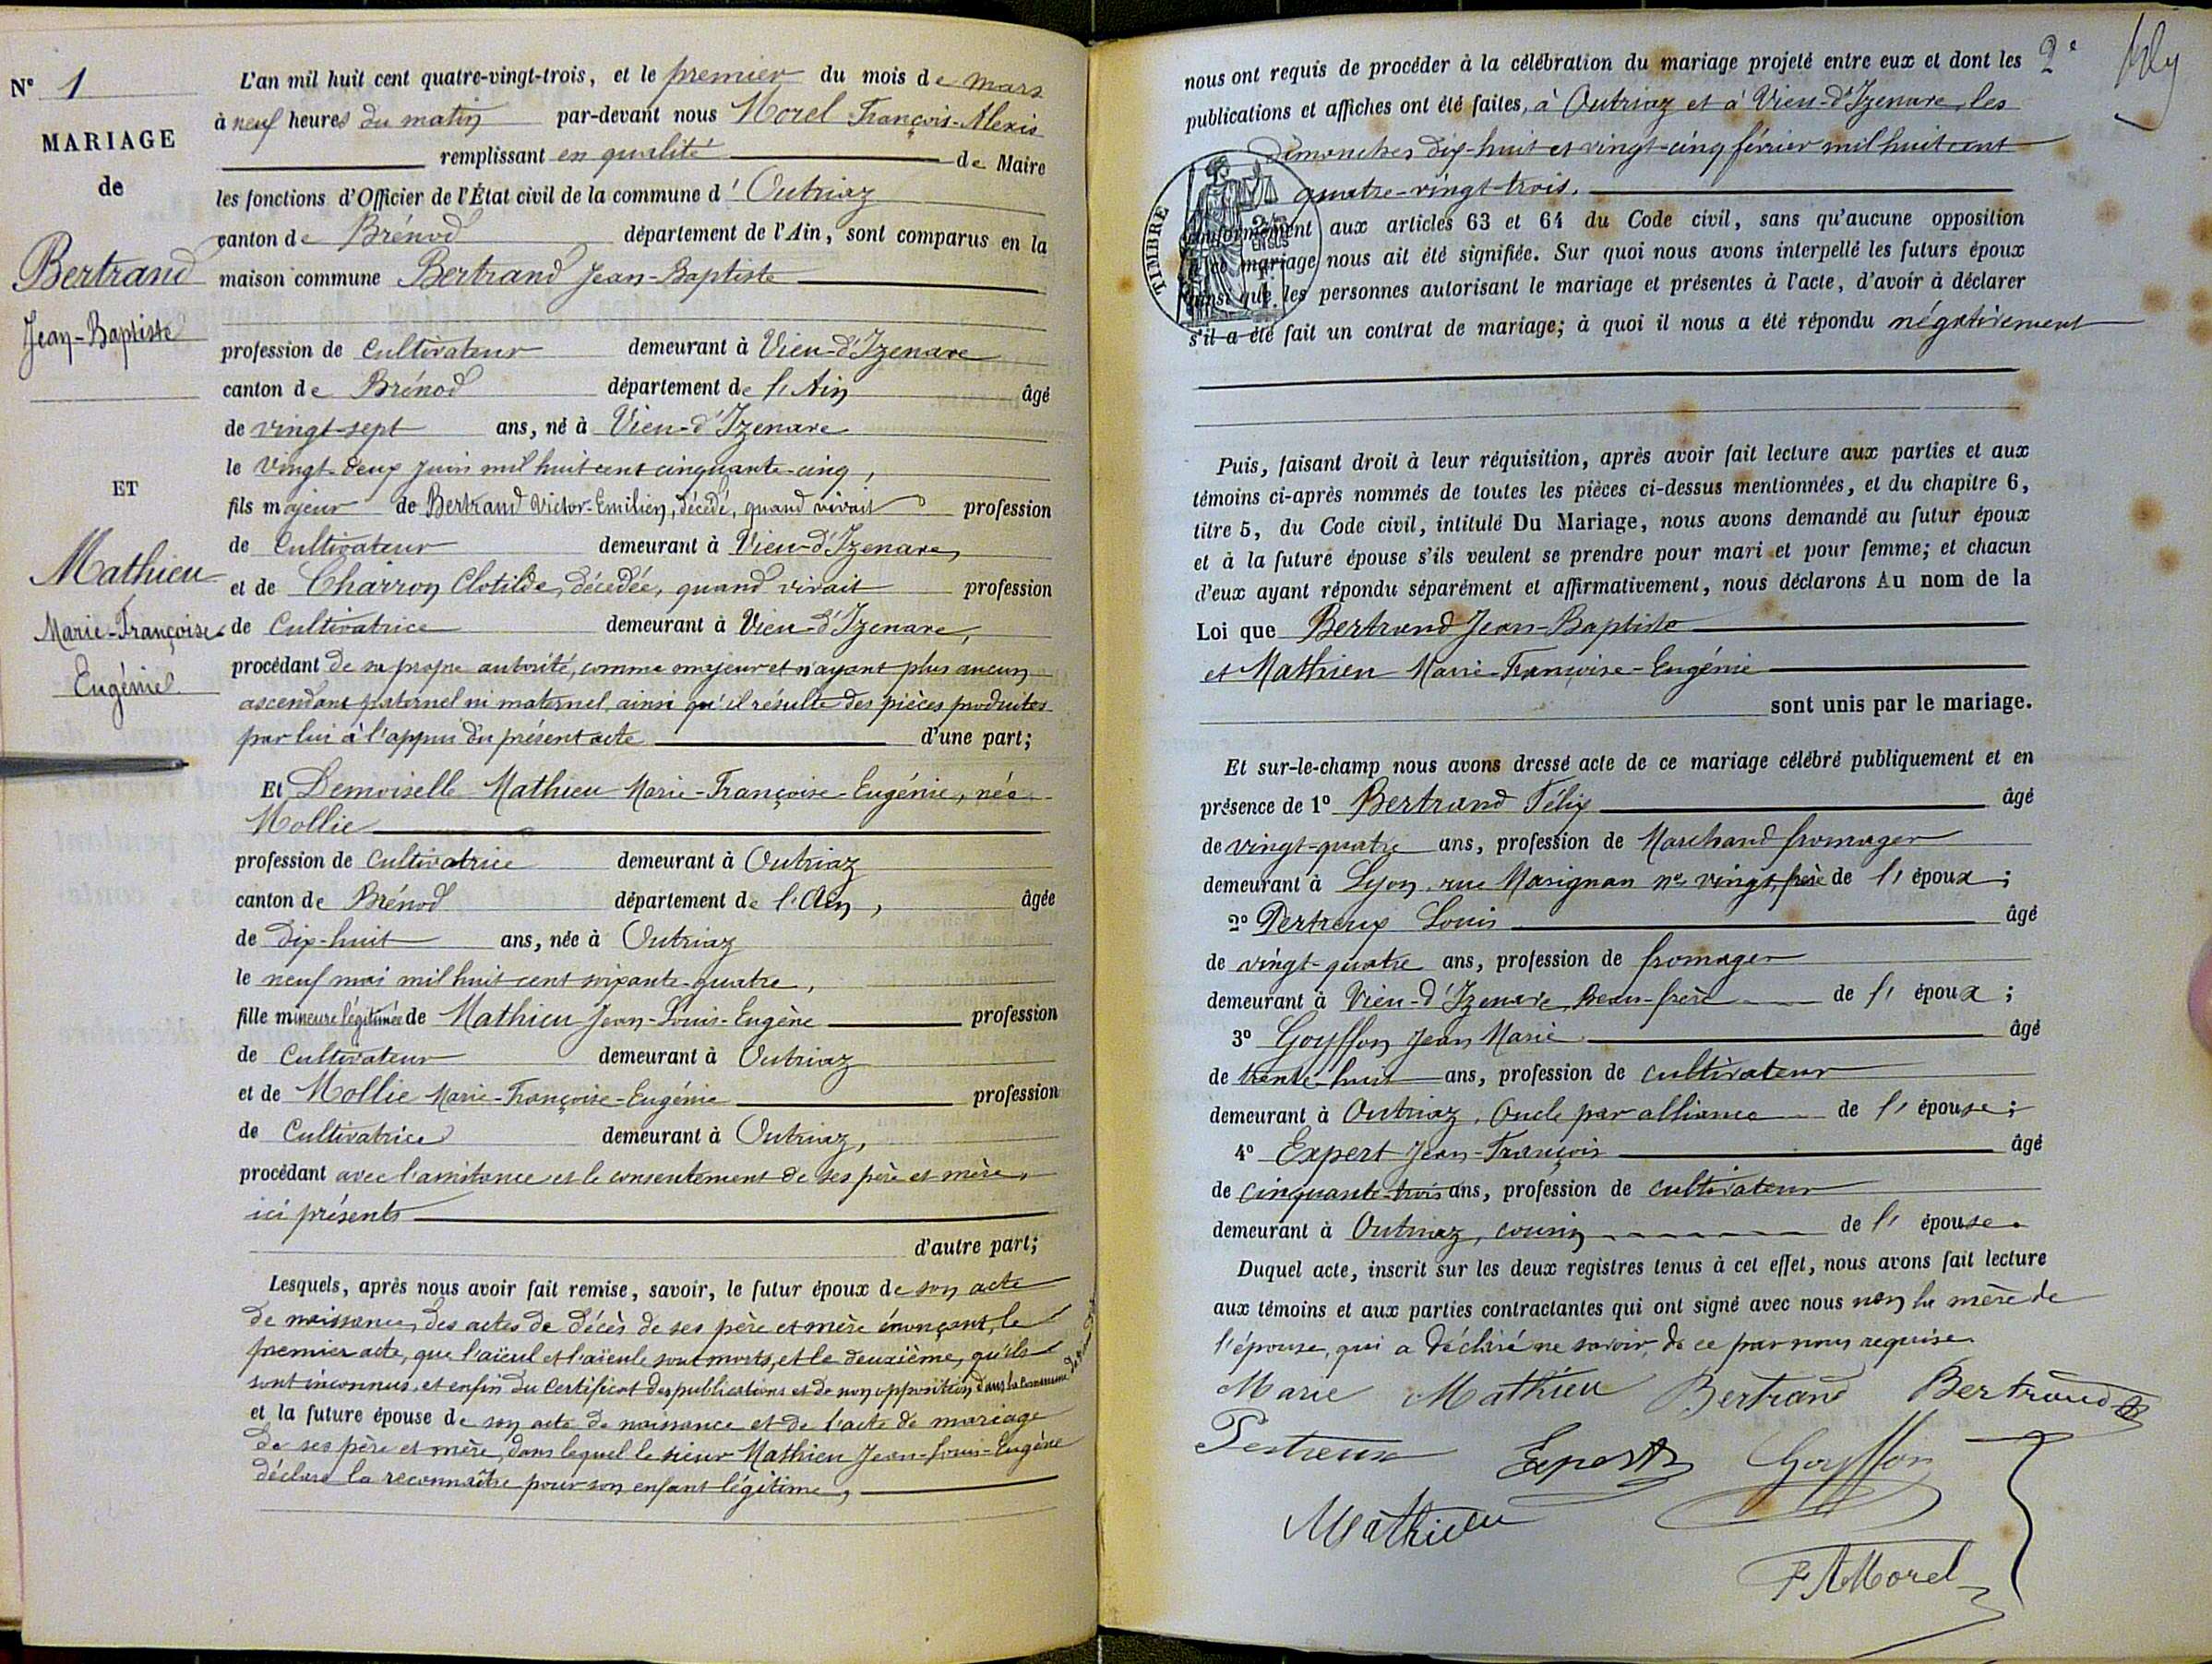 N° 1
MARIAGE
de
Bertrand
Jean-Baptiste
ET
Mathieu
Marie-Françoise
Eugénie
L'an mil huit cent quatre-vingt-trois, et le premier du mois de mars
à neuf heures du matin par-devant nous Morel François-Alexis
remplissant en qualité de Maire
les fonctions d'Officier de l'État civil de la commune d'Outriaz
canton de Brénod département de l'Ain, sont comparus en la
maison commune Bertrand Jean-Baptiste
profession de Cultivateur demeurant à Vieu-d'Izenave
canton de Brénod département de l'Ain âgé
de vingt-sept ans, né à Vieu-d'Izenave
le vingt-deux juin mil huit cent cinquante-cinq,
fils majeur de Bertrand Victor-Emilien, décédé, quand vivait profession
de Cultivateur demeurant à Vieu-d'Izenave,
et de Charron Clotilde, décédée, quand vivait profession
de Cultivatrice demeurant à Vieu-d'Izenave,
procédant de sa propre autorité, comme majeur et n'ayant plus aucun
ascendant paternel ni maternel, ainsi qu'il résulte des pièces produites
par lui à l'appui du présent acte d'une part;
Et Demoiselle Mathieu Marie-Françoise-Eugénie, née
Mollie
profession de Cultivatrice demeurant à Outriaz
canton de Brénod département de l'Ain, âgée
de dix-huit ans, née à Outriaz
le neuf mai mil huit cent soixante-quatre,
fille mineure légitimée de Mathieu Jean-Louis-Eugène profession
de Cultivateur demeurant à Outriaz
et de Mollie Marie-Françoise-Eugénie profession
de Cultivatrice demeurant à Outriaz,
procédant avec l'assistance et le consentement de ses père et mère,
ici présents
d'autre part;
Lesquels, après nous avoir fait remise, savoir, le futur époux de son acte
de naissance, des actes de décès de ses père et mère énonçant, le
premier acte, que l'aïeul et l'aïeule sont morts, et le deuxième, qu'ils
sont inconnus, et enfin du certificat des publications et de non opposition dans la commune
et la future épouse de son acte de naissance et de l'acte de mariage
de ses père et mère, dans lequel le sieur Mathieu Jean-Louis-Eugène
déclare la reconnaître pour son enfant légitime,
2e
nous ont requis de procéder à la célébration du mariage projeté entre eux et dont les
publications et affiches ont été faites, à Outriaz et à Vieu-d'Izenave, les
dimanches dix-huit et vingt-cinq février mil huit cent
quatre-vingt-trois.
TIMBRE
conformément aux articles 63 et 64 du Code civil, sans qu'aucune opposition
à ce mariage nous ait été signifiée. Sur quoi nous avons interpellé les futurs époux
ainsi que les personnes autorisant le mariage et présentes à l'acte, d'avoir à déclarer
s'il a été fait un contrat de mariage; à quoi il nous a été répondu négativement
Puis, faisant droit à leur réquisition, après avoir fait lecture aux parties et aux
témoins ci-après nommés de toutes les pièces ci-dessus mentionnées, et du chapitre 6,
titre 5, du Code civil, intitulé Du Mariage, nous avons demandé au futur époux
et à la future épouse s'ils veulent se prendre pour mari et pour femme; et chacun
d'eux ayant répondu séparément et affirmativement, nous déclarons Au nom de la
Loi que Bertrand Jean-Baptiste
et Mathieu Marie-Françoise-Eugénie
sont unis par le mariage.
Et sur-le-champ nous avons dressé acte de ce mariage célébré publiquement et en
présence de 1° Bertrand Félix âgé
de vingt-quatre ans, profession de Marchand fromager
demeurant à Lyon, rue Marignan no vingt, frère de l'époux;
2° Pertreux Louis âgé
de vingt-quatre ans, profession de fromager
demeurant à Vieu-d'Izenave, beau-frère de l'époux;
3° Goyffon Jean Marie âgé
de trente-huit ans, profession de cultivateur
demeurant à Outriaz, Oncle par alliance de l'épouse;
4° Expert Jean-François âgé
de cinquante-trois ans, profession de cultivateur
demeurant à Outriaz, cousin de l'épouse.
Duquel acte, inscrit sur les deux registres tenus à cet effet, nous avons fait lecture
aux témoins et aux parties contractantes qui ont signé avec nous non la mère de
l'épouse, qui a déclaré ne savoir, de ce par nous requise
Marie Mathieu Bertrand Bertrand
Pertreux Expert Goyffon
Mathieu
F A Morel